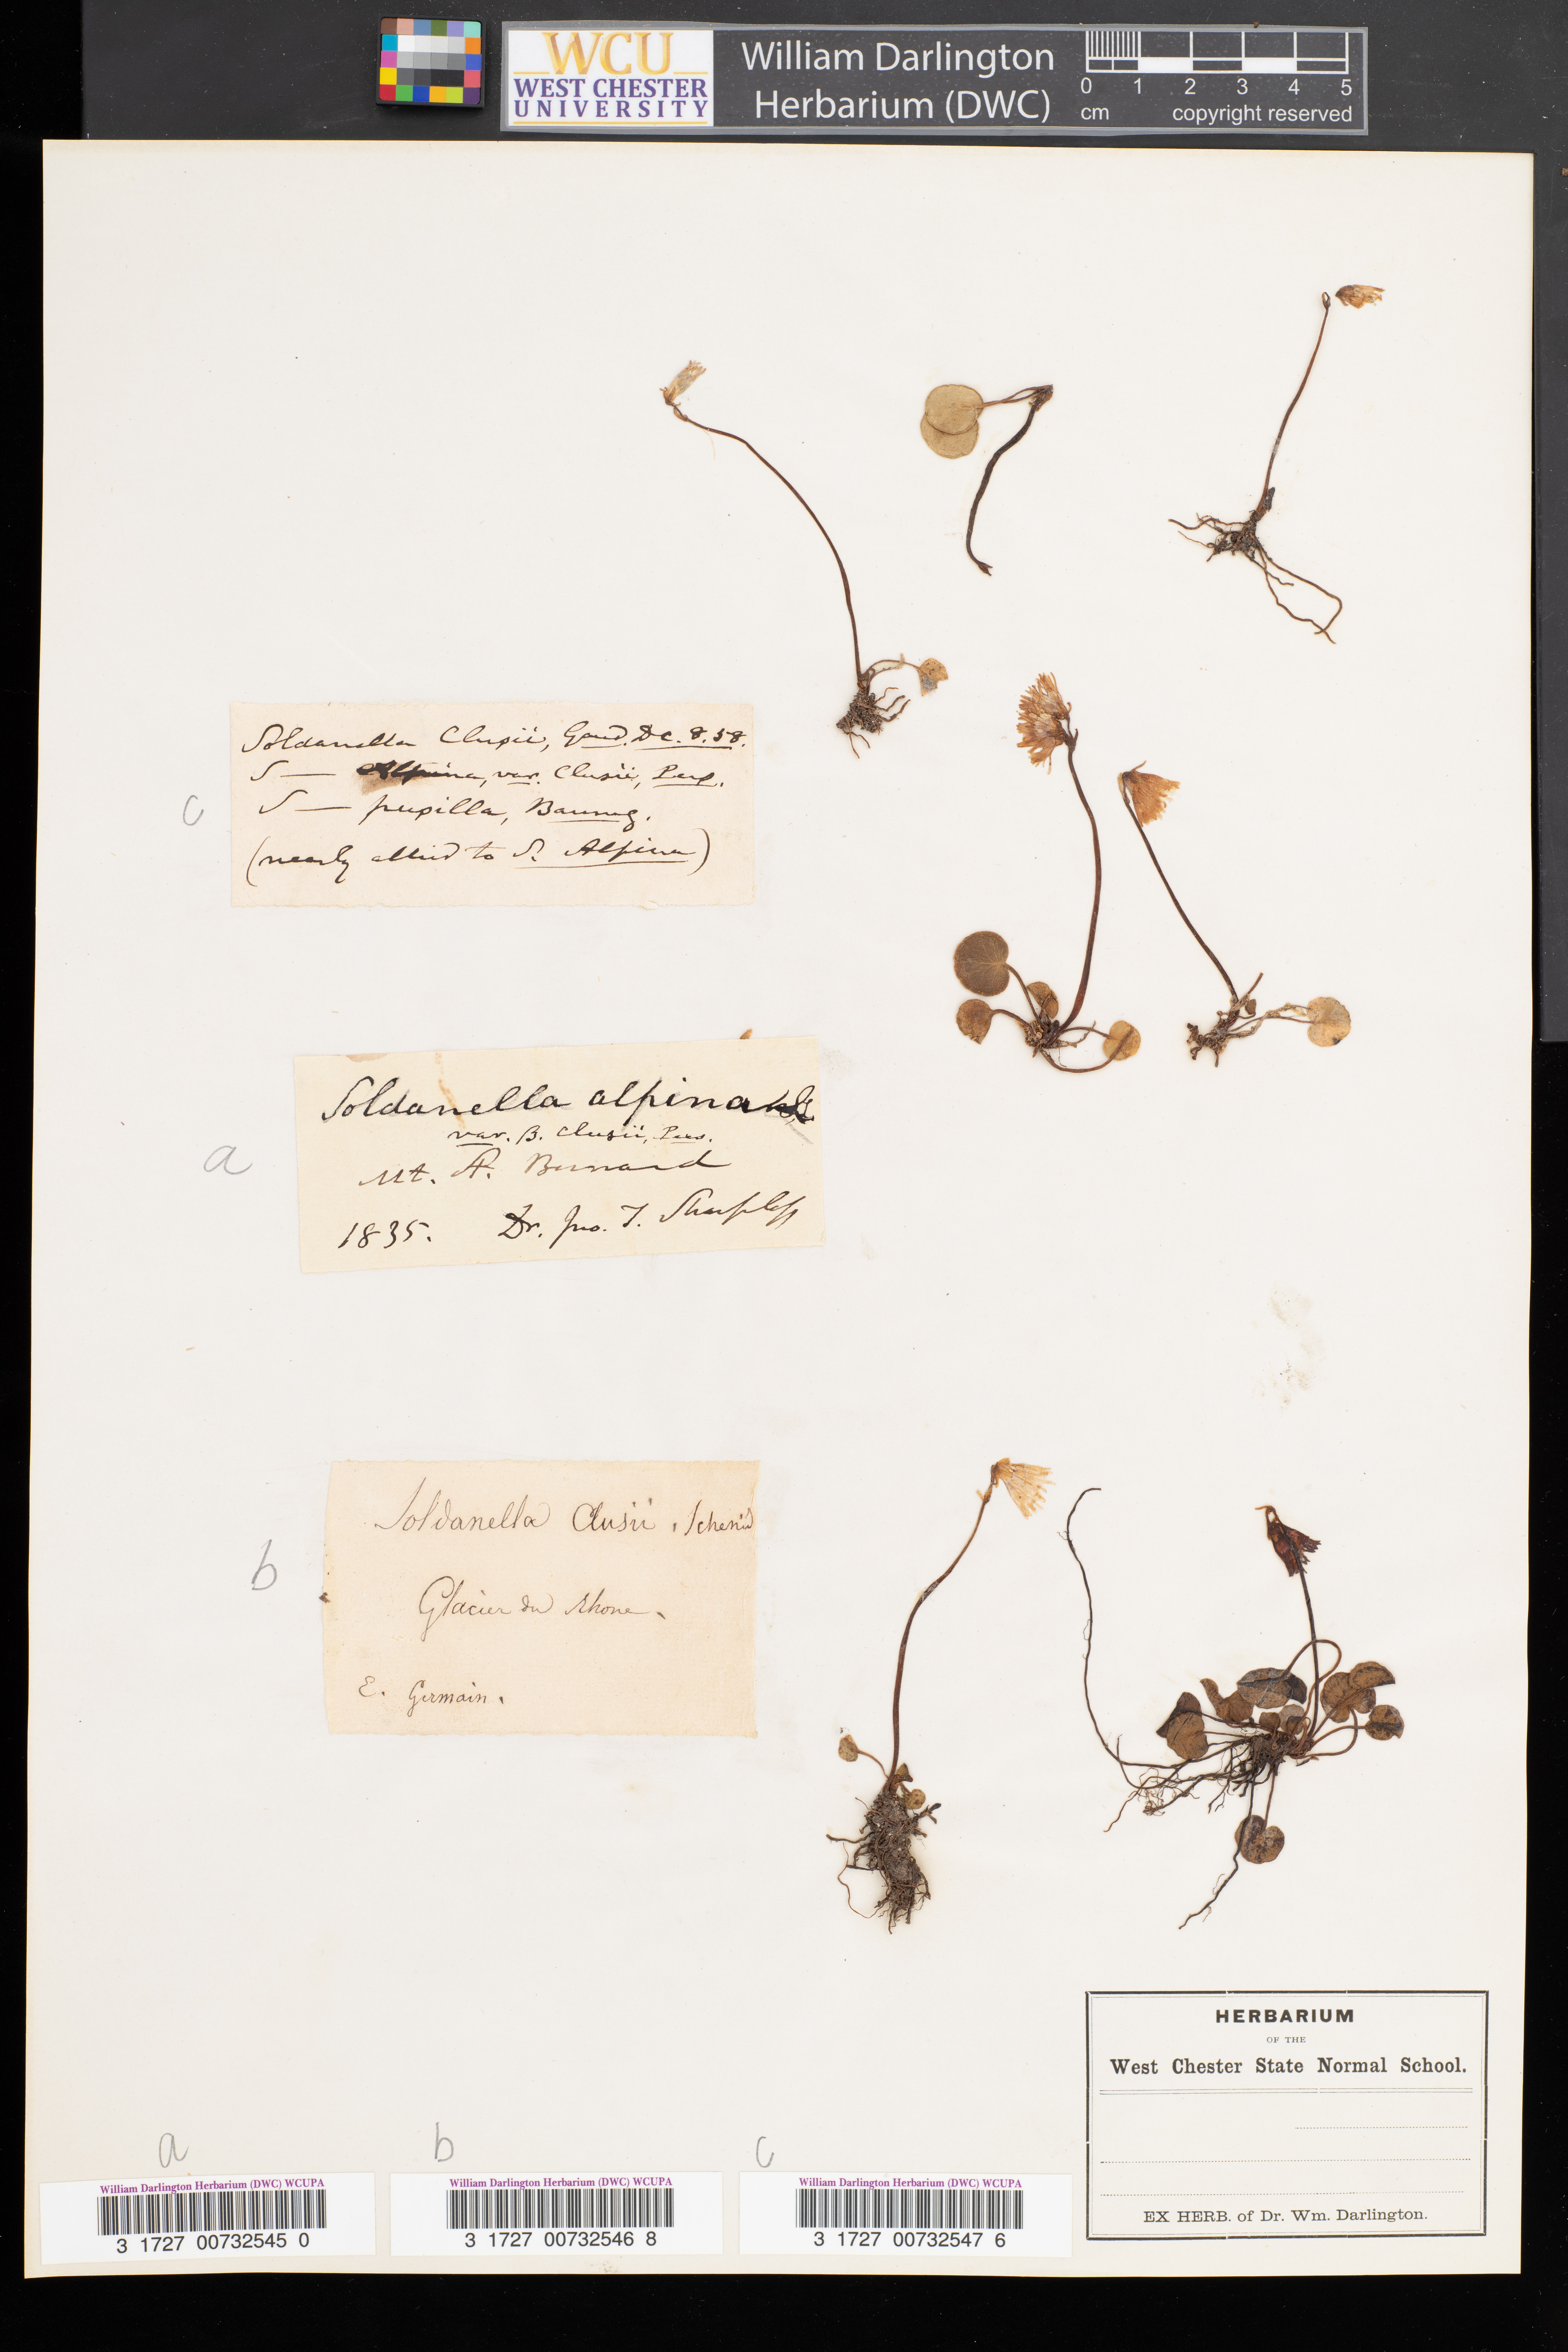 WCU
WEST CHESTER
UNIVERSITY
William Darlington
Herbarium (DWC)
0 1 2 3 4 5
cm copyright reserved
Soldanella Clusii, Gaud. DC. 8. 58.
S — Alpina, var. Clusii, Pers.
c
S — pusilla, Baumg.
(nearly allied to S. Alpina)
Soldanella alpina
var. B. Clusii, Pers.
a
Mt. St. Bernard
1835. Dr. Jno. T. Sharpless
Soldanella Clusii, Schmid
b
Glacier du Rhone.
E. Germain.
HERBARIUM
OF THE
West Chester State Normal School.
EX HERB. of Dr. Wm. Darlington.
a b c
William Darlington Herbarium (DWC) WCUPA
3 1727 00732545 0
William Darlington Herbarium (DWC) WCUPA
3 1727 00732546 8
William Darlington Herbarium (DWC) WCUPA
3 1727 00732547 6